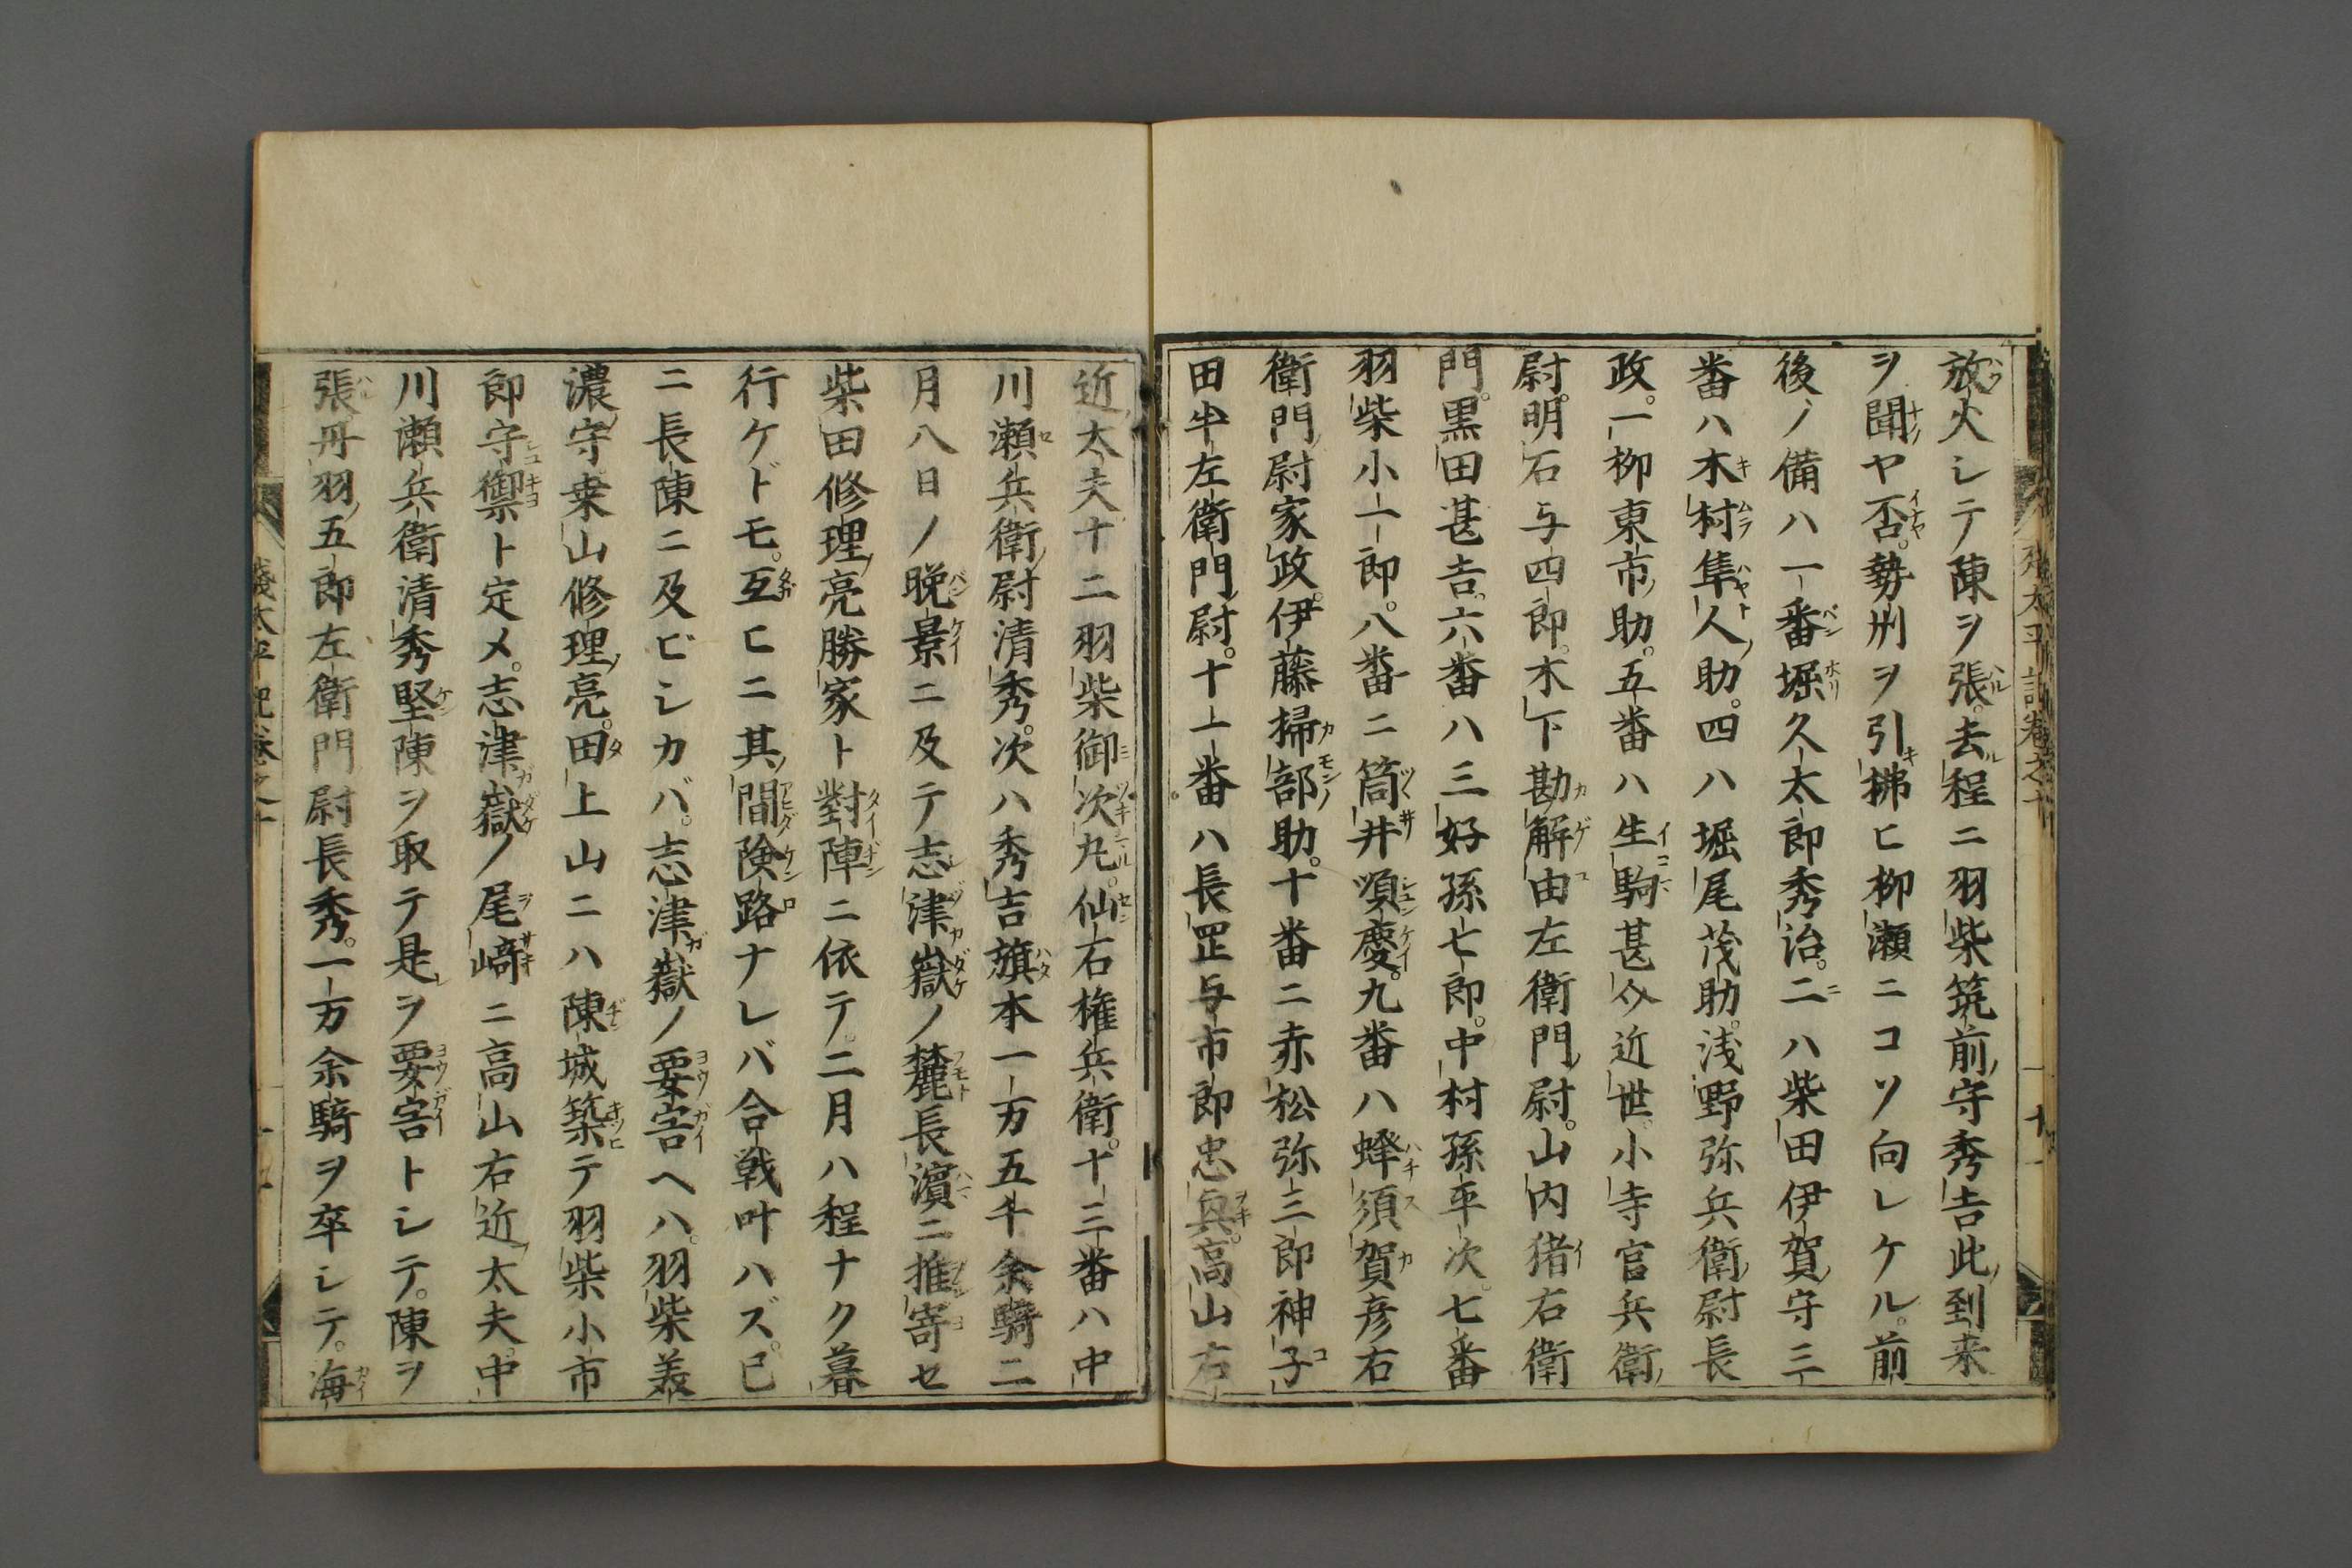 放火シテ陳ヲ張。去程ニ羽柴筑前守秀吉此到来
ヲ聞ヤ否。勢州ヲ引拂ヒ柳瀬ニコソ向レケル。前
後ノ備ハ一番堀久太郎秀治。二ハ柴田伊賀守三
番ハ木村隼人助。四ハ堀尾茂助。浅野弥兵衛尉長
政。一柳東市助。五番ハ生駒甚介近世。小寺官兵衛
尉。明石与四郎。木下勘解由左衛門尉。山内猪右衛
門。黒田甚吉。六番ハ三好孫七郎。中村孫平次。七番
羽柴小一郎。八番ニ筒井順慶。九番ハ蜂須賀彦右
衛門尉家政。伊藤掃部助。十番ニ赤松弥三郎神子
田半左衛門尉。十一番ハ長罡与市郎忠興。高山右
近太夫十二羽柴御次丸。仙石権兵衛。十三番ハ中
川瀬兵衛尉清秀。次ハ秀吉旗本一万五千余騎二
月八日ノ晩景ニ及テ志津嶽ノ麓長濵ニ推寄セ
柴田修理亮勝家ト對陣ニ依テ。二月ハ程ナク暮
行ケドモ。互ヒニ其間険路ナレバ合戦叶ハズ。已
ニ長陳ニ及ビシカバ。志津嶽ノ要害ヘハ。羽柴美
濃守桒山修理亮。田上山ニハ陳城築テ羽柴小市
郎守禦ト定メ。志津嶽ノ尾﨑ニ高山右近太夫。中
川瀬兵衛清秀堅陳ヲ取テ是ヲ要害トシテ。陳ヲ
張丹羽五郎左衛門尉長秀。一万余騎ヲ卒シテ。海